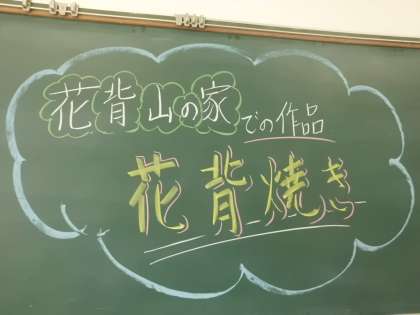 花背山の家での作品
花背焼き